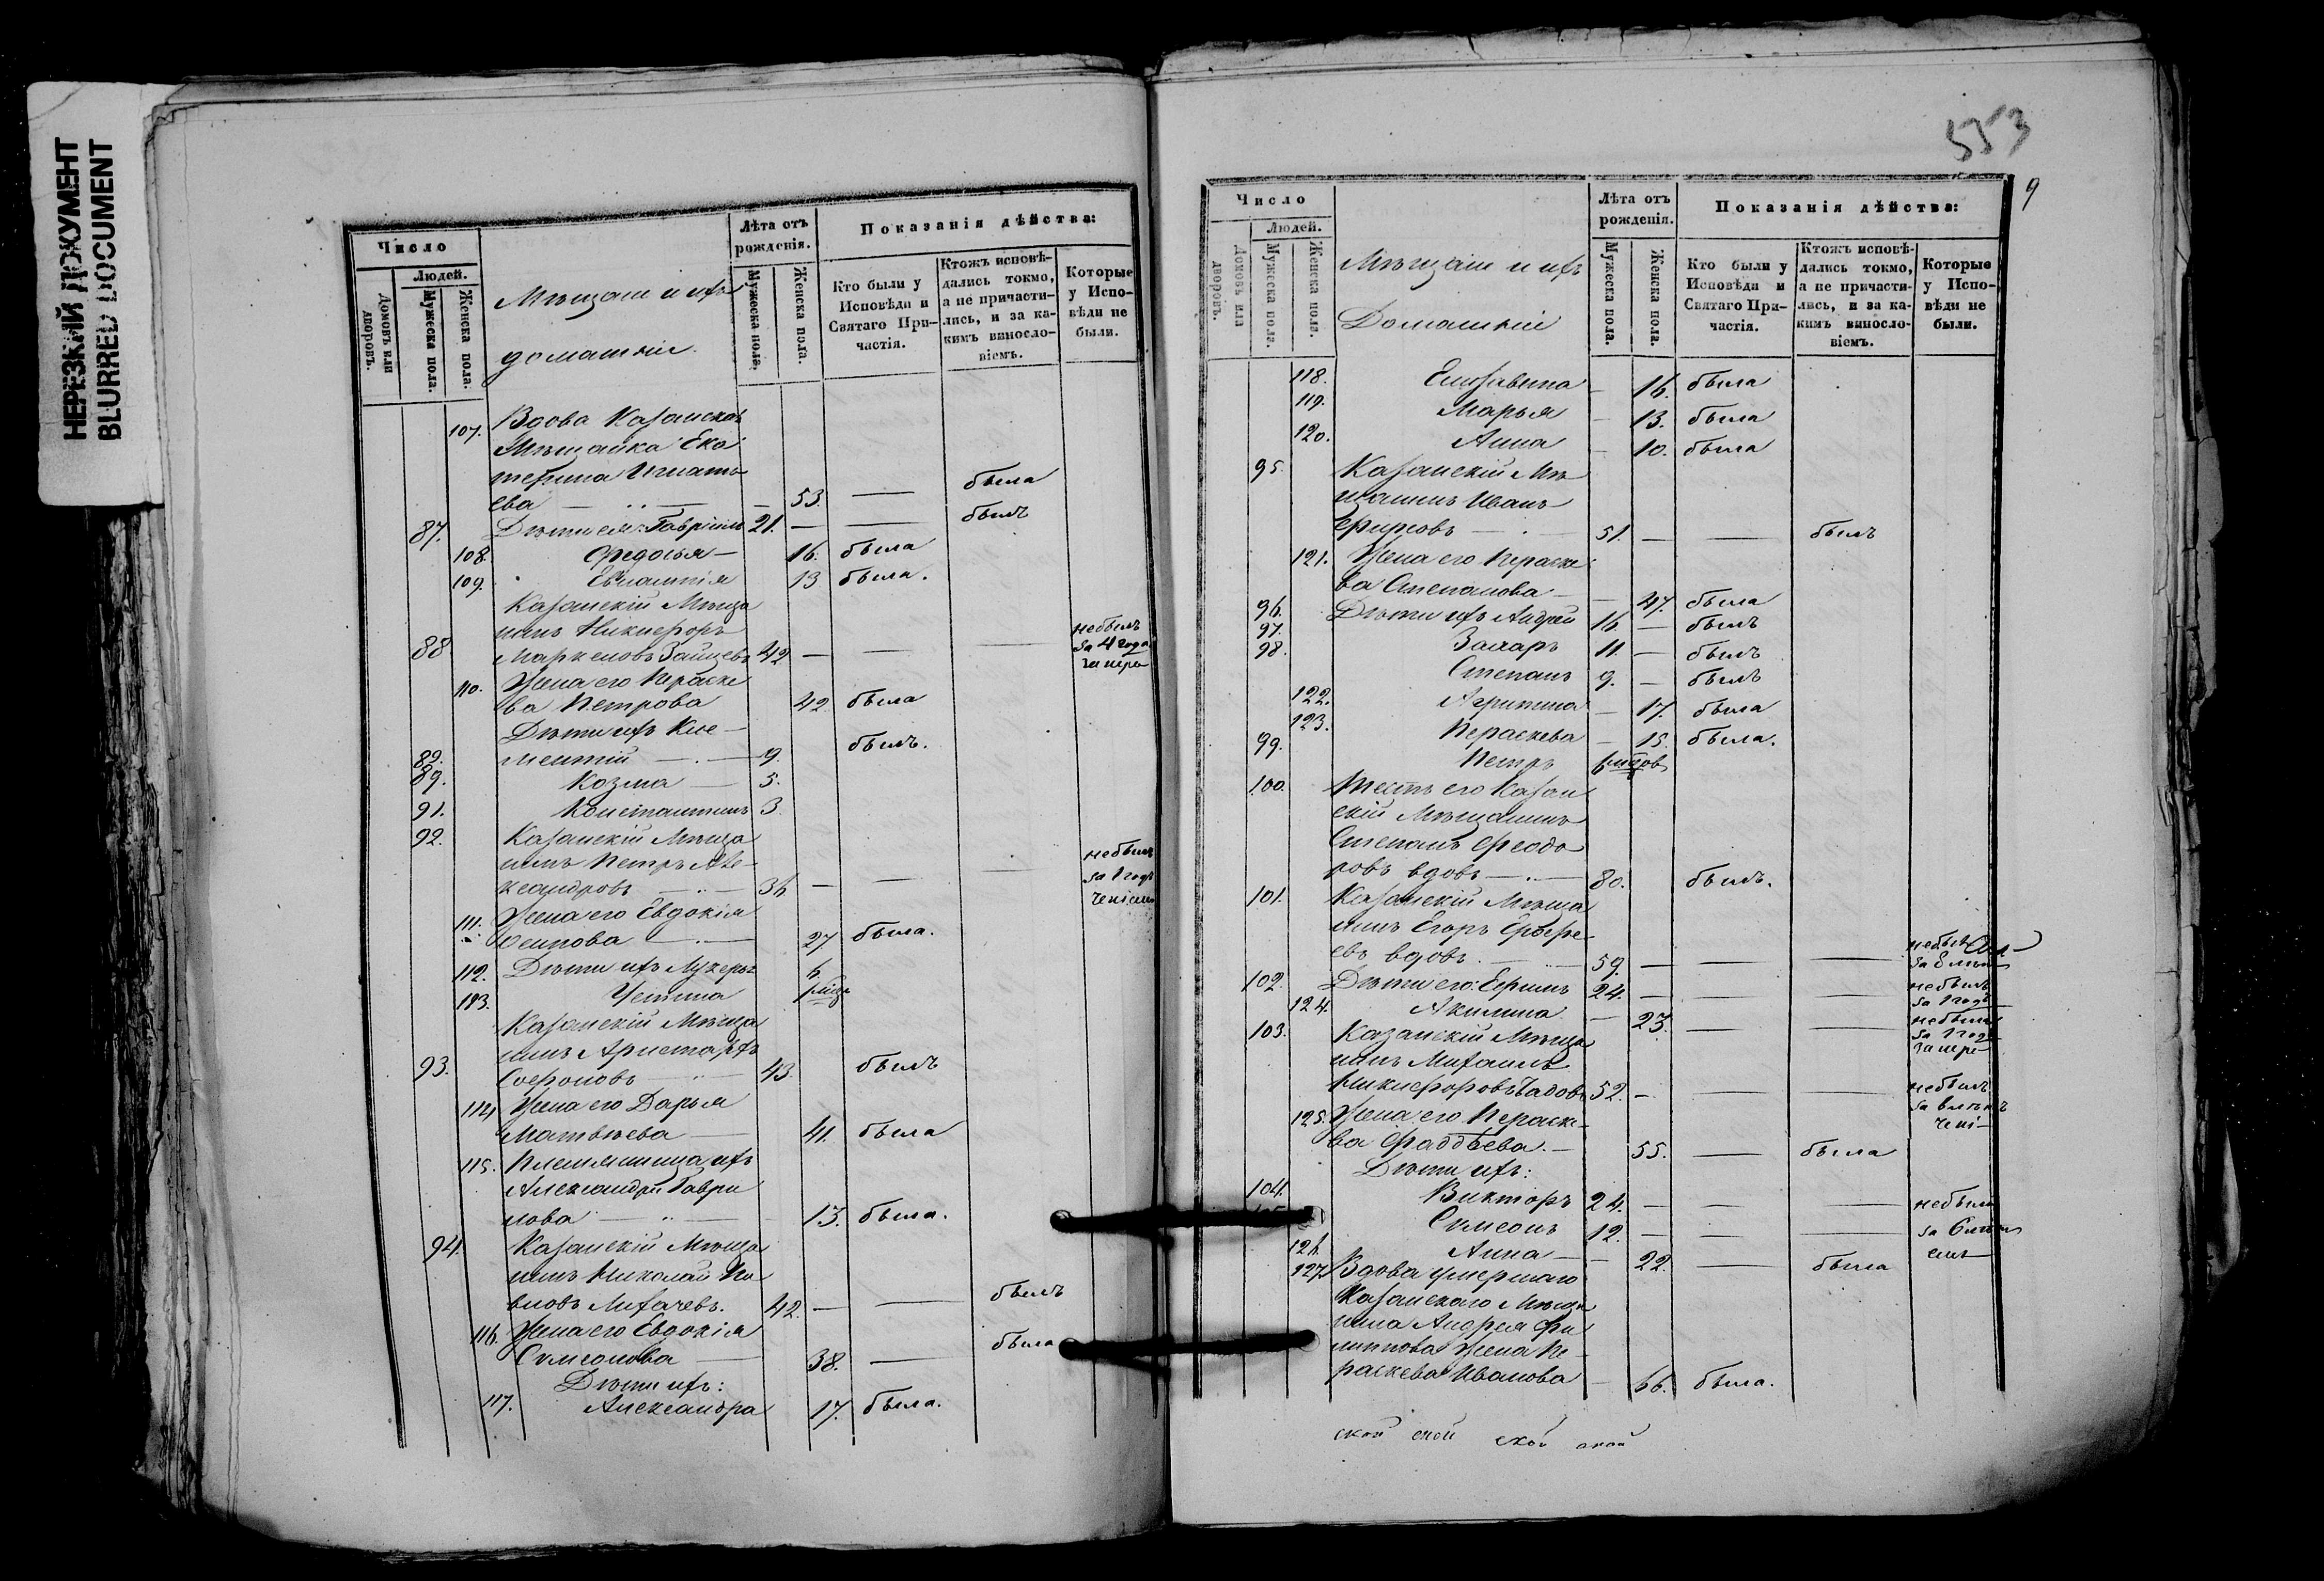 НЕРЕЗКИЙ ДОКУМЕНТ
BLURRED DOCUMENT
Число
Людей.
Домовъ или дворовъ.
Мужеска пола.
Женска пола.
Мѣщане и ихъ
домашніе.
Лѣта отъ рожденія.
Мужеска пола.
Женска пола.
Показанія дѣйства:
Кто были у Исповѣди и Святаго Причастія.
Ктожъ исповѣдались токмо, а не причастились, и за какимъ винословіемъ.
Которые у Исповѣди не были.
107. Вдова Казанская
Мѣщанка Ека
терина Игнать
ева — 53. — была
87. Дѣти ея: Гавріилъ 21. — — былъ
108. Ѳедосья — 16. была
109. Евлампія 13 была.
Казанскій Мѣща
нинъ Никифоръ
88 Маркеловъ Зайцевъ 42 — — — небылъ за 4 года
110. Жена его Параске
ва Петрова 42 была
Дѣти ихъ Кле—
89. ментій — 9. былъ.
89. Козма — 5.
91. Константинъ 3
92. Казанскій Мѣща
нинъ Петръ Але—
ксандровъ — 36 — — — небылъ за 1 годъ
111. Жена его Евдокія
Осипова — 27 была.
112. Дѣти ихъ Лукерья 6
113. Устина 1 мѣсц
Казанскій Мѣща
нинъ Аристархъ
93. Софоновъ — 43. былъ
114 Жена его Дарья
Матвѣева — 41. была
115. Племянница ихъ
Александра Гаври
лова — 13. была.
94. Казанскій Мѣща
нинъ Николай Па
вловъ Лихачевъ. 42. — — былъ
116. Жена его Евдокія
Симеонова — 38. — была
Дѣти ихъ:
117. Александра 17. была.
553
9
Число
Людей.
Домовъ или дворовъ.
Мужеска пола.
Женска пола.
Мѣщане и ихъ
Домашніе
Лѣта отъ рожденія.
Мужеска пола.
Женска пола.
Показанія дѣйства:
Кто были у Исповѣди и Святаго Причастія.
Ктожъ исповѣдались токмо, а не причастились, и за какимъ винословіемъ.
Которые у Исповѣди не были.
118. Елизавета — 16. была
119. Марья — 13. была
120. Анна — 10. была
95. Казанскій Мѣ
щанинъ Иванъ
Фирсовъ — 51. — — былъ
121. Жена его Параске
ва Степанова — 47. была
96. Дѣти ихъ Андрей 16. — былъ
97. Захаръ 11. — былъ
98. Степанъ 9. — былъ
122. Агрипина — 17. была
123. Параскева — 15. была.
99. Петръ
100. Тесть его Казан
скій Мѣщанинъ
Степанъ Ѳеодо
ровъ вдовъ — 80. былъ.
101. Казанскій Мѣща
нинъ Егоръ Ефре
евъ вдовъ. — 59. — — — небылъ за 8 лѣтъ
102. Дѣти его: Ефимъ 24. — — — небылъ за 1 годъ
124. Акилина — 23. — — небыла за 1 годъ
103. Казанскій Мѣща
нинъ Михаилъ
Никифоровъ Чадовъ 52. — — — небылъ
125. Жена его Параске—
ва Фаддѣева. — 55. — была
Дѣти ихъ:
104. Викторъ 24. — — — небыли
105. Симеонъ 12. — — — за 6 лѣтъ
126. Анна — 22. — была
127. Вдова умершаго
Казанскаго Мѣща
нина Андрея Фи
липпова Жена Па—
раскева Иванова — 66. была.
ской ской ской ской